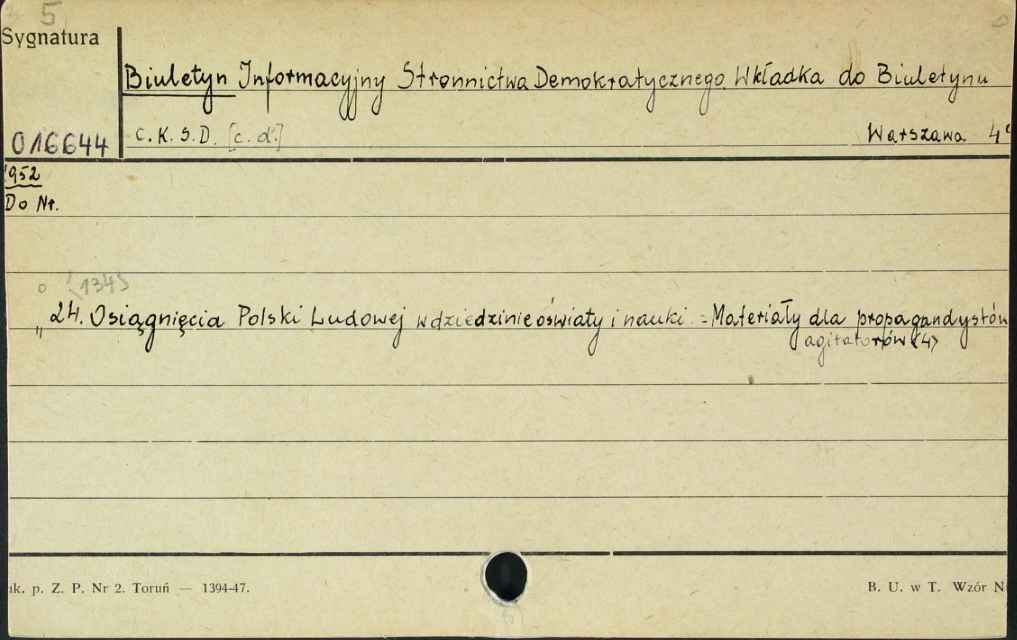 5
Sygnatura
Biuletyn Informacyjny Stronnictwa Demokratycznego. Wkładka do Biuletynu
016644 C.K.S.D. [c. d.] Warszawa 4°
1952
Do Nr.
<134>
„ 24. Osiągnięcia Polski Ludowej w dziedzinie oświaty i nauki. = Materiały dla propagandystów
agitatorów <4>
uk. p. Z. P. Nr 2. Toruń — 1394-47. B. U. w T. Wzór N